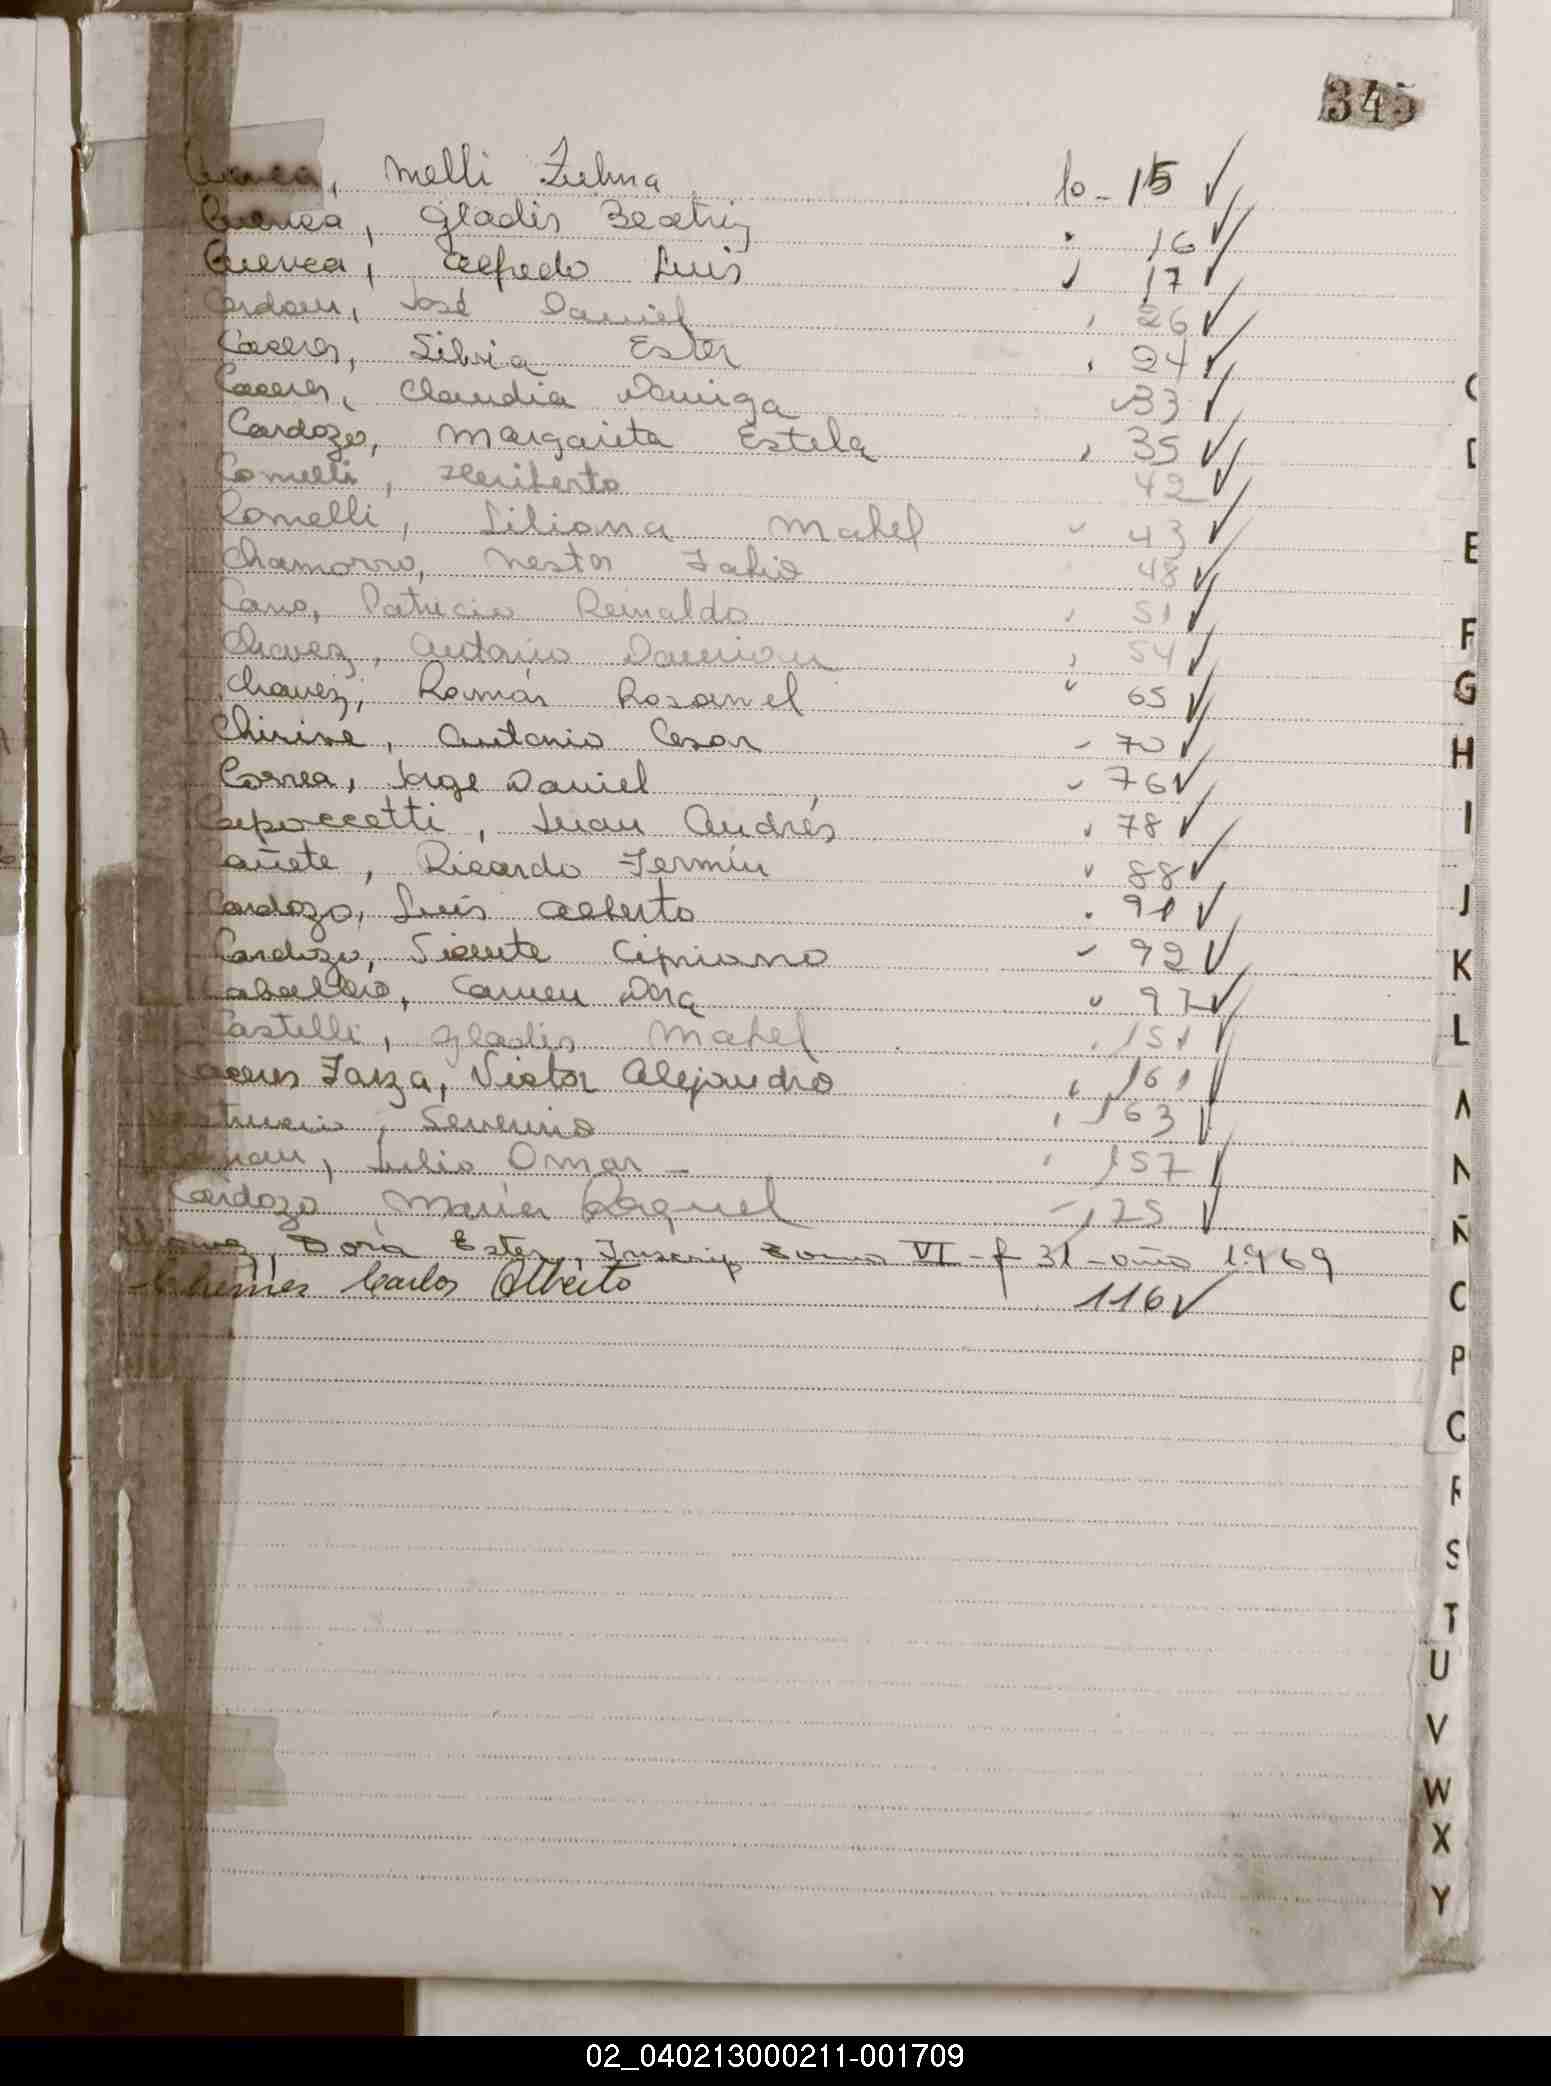 345
Cuenca, Melli Zulma fo - 15 ✓
Cuenca, Gladis Beatriz " 16 ✓
Cuenca, Alfredo Luis " 17 ✓
José Daniel " 26 ✓
Caceres, Silvia Ester " 24 ✓
Caceres, Claudia Domiga " 33 ✓
Cardozo, Margarita Estela " 35 ✓
Comelli, Heriberto 42 ✓
Comelli, Liliana Mabel " 43 ✓
Chamorro, Nestor Fabio 48 ✓
Cano, Patricio Reinaldo " 51 ✓
Chavez, Antonio Damian " 54 ✓
Chavez, Román Rosanel " 65 ✓
Chirise, Antonio Cesar " 70 ✓
Correa, Jorge Daniel " 76 ✓
Capoccetti, Juan Andrés " 78 ✓
Cañete, Ricardo Fermín " 88 ✓
Cardozo, Luis Alberto " 91 ✓
Cardozo, Vicente Cipriano " 92 ✓
Caballero, Carmen Dora " 97 ✓
Castelli, Gladis Mabel " 151 ✓
Caceres Faiza, Victor Alejandro " 161 ✓
Severino " 163 ✓
Julio Omar - " 157 ✓
Cardozo Maria Raquel " 175 ✓
Dora Ester, Inscrip Tomo VI - f 31 - año 1969
Carlos Alberto 116 ✓
C
D
E
F
G
H
I
J
K
L
M
N
Ñ
O
P
Q
R
S
T
U
V
W
X
Y
02_040213000211-001709